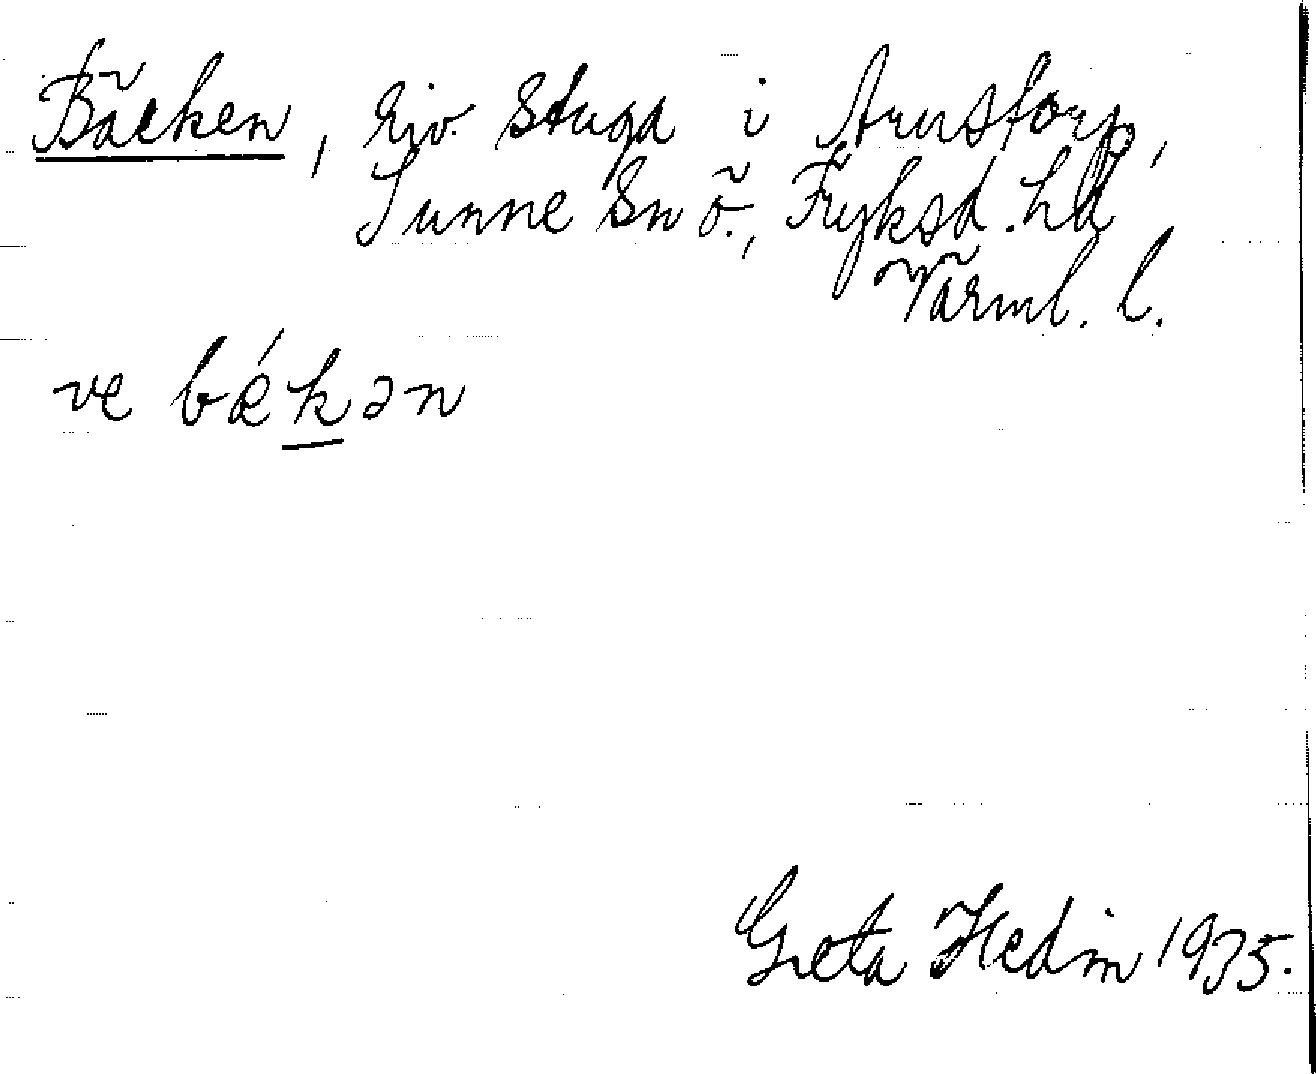 Bäcken, riv. stuga i Arnstorp,
Sunne Sn ö., Fryksd. hd
Värml. l.
ve bǽkən
Greta Hedin 1935.